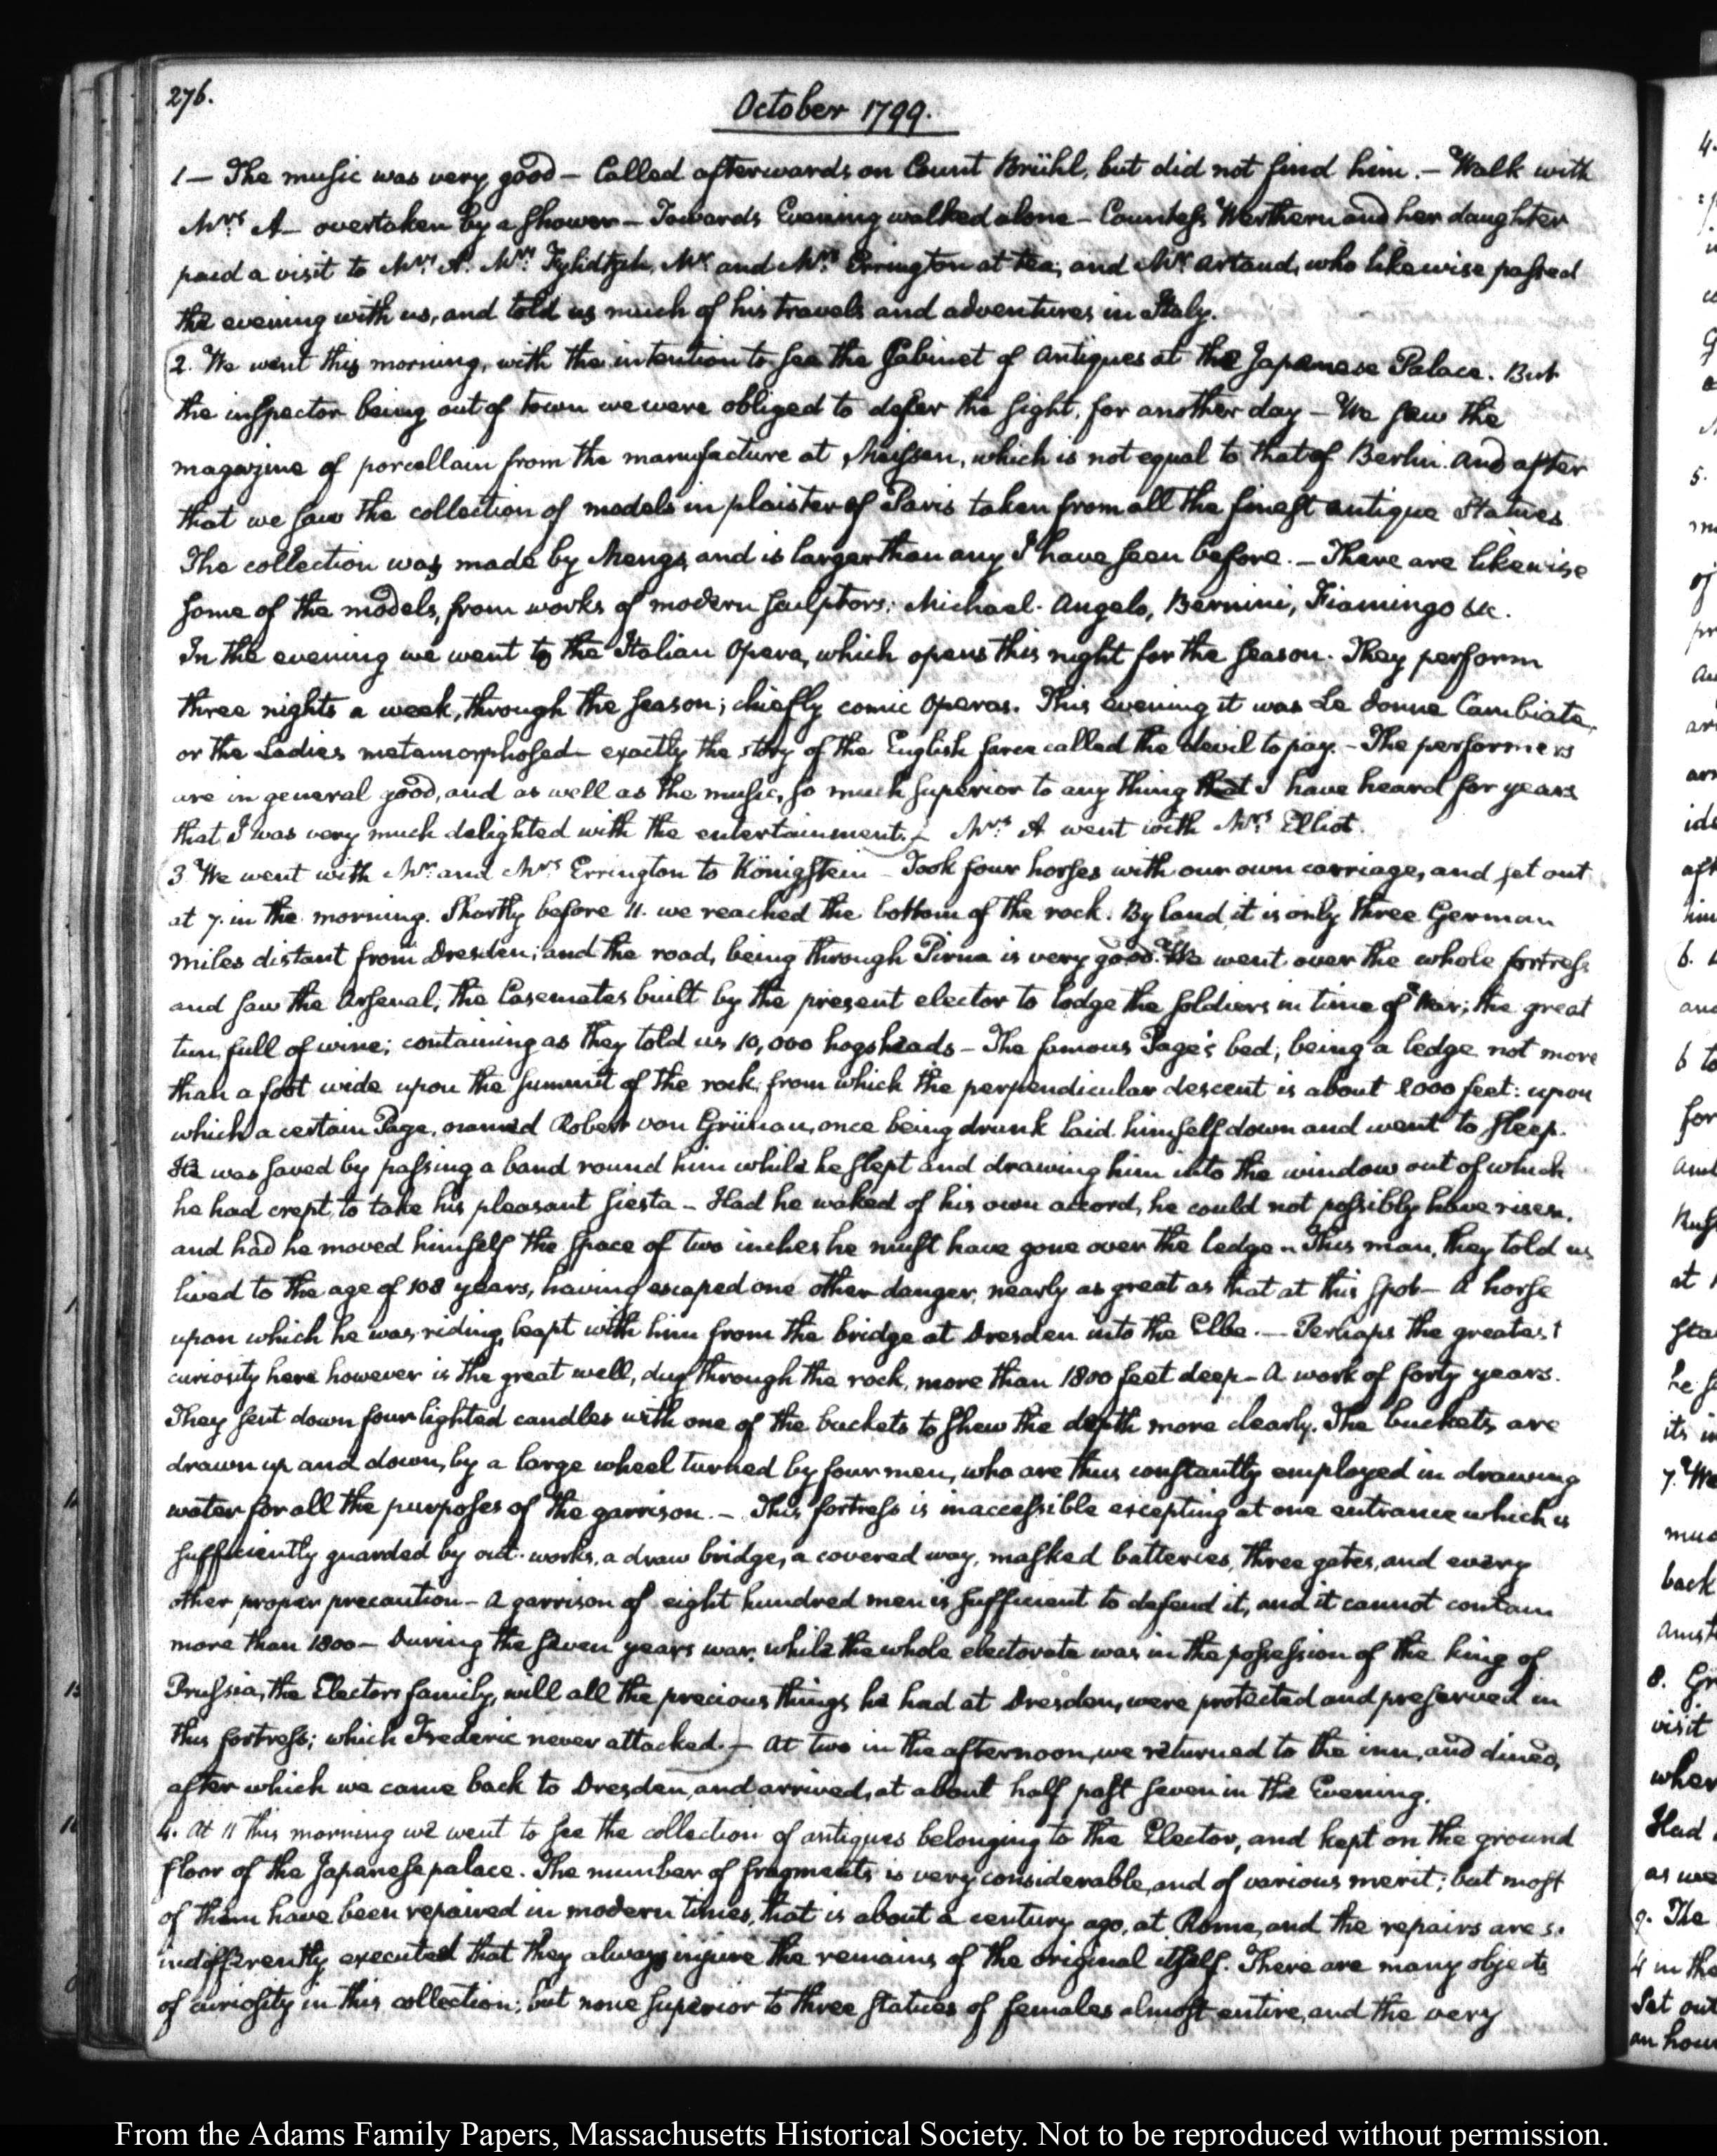 276.
October 1799.
1 — The music was very good — Called afterwards on Count Brühl, but did not find him. — Walk with
Mrs. A — overtaken by a shower — Towards Evening walked alone — Countess Werthern and her daughter
paid a visit to Mrs. A. Mrs. Mr. and Mrs. Errington at tea; and Mr. Artaud, who likewise passed
the evening with us, and told us much of his travels and adventures in Italy.
2. We went this morning, with the intention to see the Cabinet of Antiques at the Japanese Palace. But
the inspector being out of town we were obliged to defer the sight, for another day — We saw the
magazine of porcellain from the manufacture at Meissen, which is not equal to that of Berlin. And after
that we saw the collection of models in plaister of Paris taken from all the finest antique Statues
The collection was made by Mengs, and is larger than any I have seen before. — There are likewise
some of the models, from works of modern sculptors; Michael Angelo, Bernini, Fiamingo &c.
In the evening we went to the Italian Opera, which opens this night for the season. They perform
three nights a week, through the season; chiefly comic Operas. This evening it was Le donne Cambiate,
or the Ladies metamorphosed — exactly the story of the English farce called the devil to pay. — The performers
are in general good, and as well as the music, so much superior to any thing that I have heard for years
that I was very much delighted with the entertainment. — Mrs. A went with Mrs. Elliot.
3 We went with Mr. and Mrs. Errington to Königstein — Took four horses with our own carriage, and set out
at 7. in the morning. Shortly before 11. we reached the bottom of the rock. By land it is only three German
miles distant from Dresden; and the road, being through Pirna is very good. We went over the whole fortress
and saw the Arsenal, the Casemates built by the present elector to lodge the soldiers in time of War; the great
tun, full of wine; containing as they told us 10,000 hogsheads — The famous Page's bed; being a ledge not more
than a foot wide upon the summit of the rock, from which the perpendicular descent is about 2000 feet: upon
which a certain Page, named Robert von Grünau, once being drunk laid himself down and went to sleep.
He was saved by passing a band round him while he slept and drawing him into the window out of which
he had crept, to take his pleasant siesta — Had he waked of his own accord, he could not possibly have risen,
and had he moved himself the space of two inches he must have gone over the ledge — This man, they told us
lived to the age of 108 years, having escaped one other danger, nearly as great as that at this spot — A horse
upon which he was riding, leapt with him from the bridge at Dresden into the Elbe. — Perhaps the greatest
curiosity here however is the great well, dug through the rock, more than 1800 feet deep — A work of forty years.
They sent down four lighted candles with one of the buckets to shew the depth more clearly. The buckets are
drawn up and down, by a large wheel turned by four men, who are thus constantly employed in drawing
water for all the purposes of the garrison. — This fortress is inaccessible excepting at one entrance which is
sufficiently guarded by out-works, a draw bridge, a covered way, masked batteries, three gates, and every
other proper precaution — A garrison of eight hundred men is sufficient to defend it, and it cannot contain
more than 1800 — During the seven years war, while the whole electorate was in the possession of the king of
Prussia, the Electors family, will all the precious things he had at Dresden, were protected and preserved in
this fortress; which Frederic never attacked. — At two in the afternoon, we returned to the inn, and dined,
after which we came back to Dresden, and arrived, at about half past seven in the Evening.
4. At 11 this morning we went to see the collection of antiques belonging to the Elector, and kept on the ground
floor of the Japanese palace. The number of fragments is very considerable, and of various merit; but most
of them have been repaired in modern times, that is about a century ago, at Rome, and the repairs are so
indifferently executed that they always injure the remains of the original itself. There are many objects
of curiosity in this collection; but none superior to three statues of females almost entire, and the very
From the Adams Family Papers, Massachusetts Historical Society. Not to be reproduced without permission.